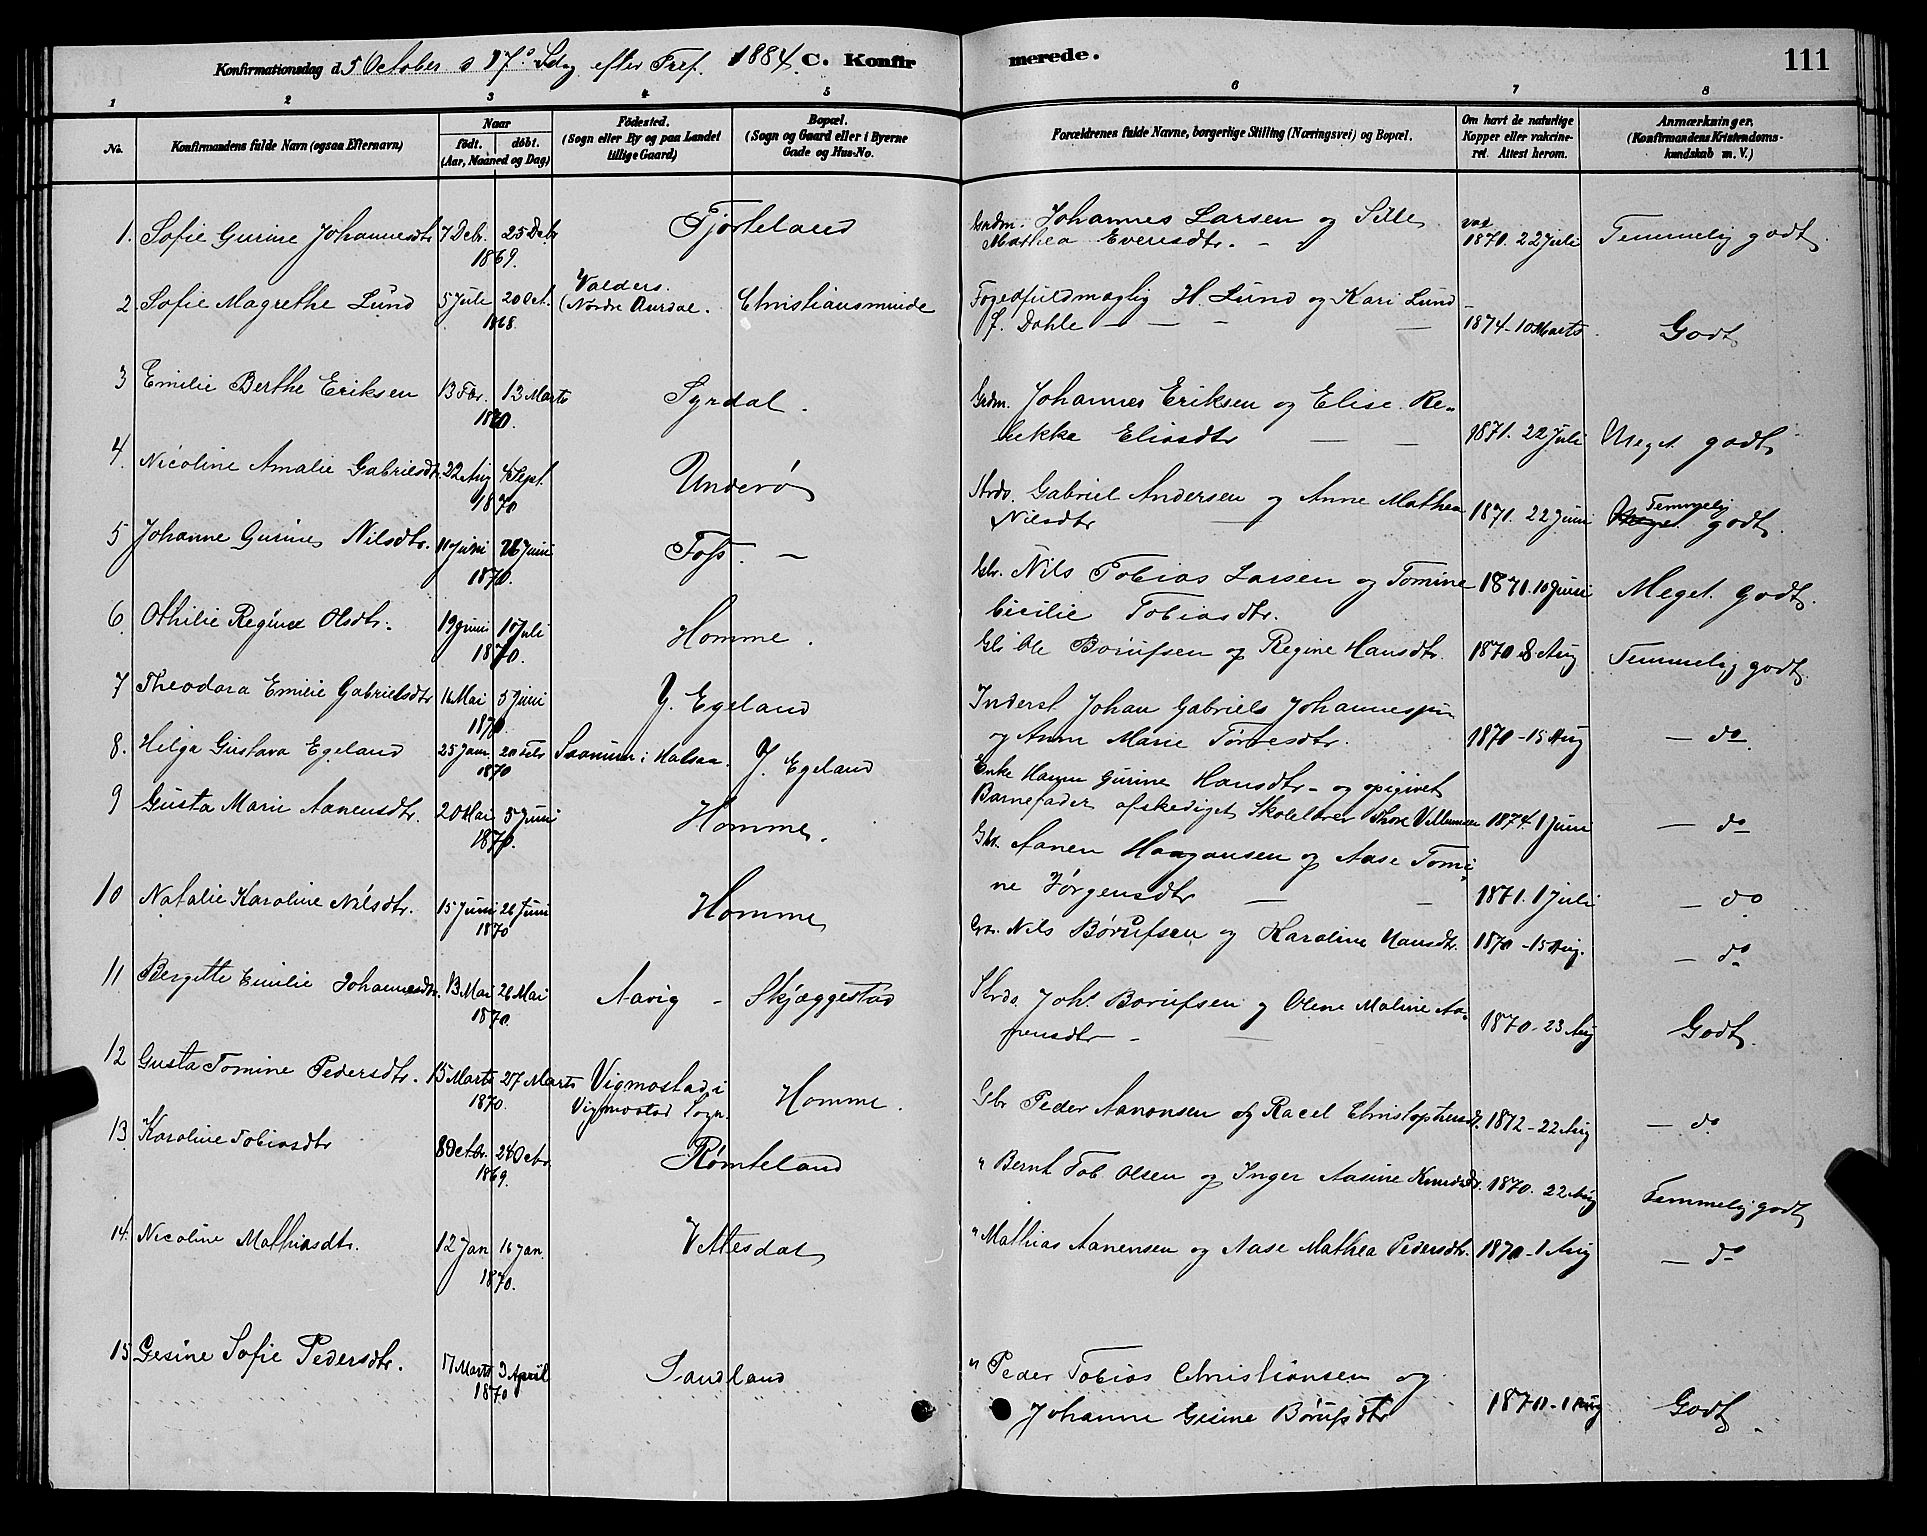 Konfirmationsdag d. 5 October s 17de Sdag efter Tref. 1884. C. Konfirmerede. 111
1 2 3 4 5 6 7 8
No. Konfirmandens fulde Navn (ogsaa Efternavn) Naar født. døbt. (Aar, Maaned og Dag) Fødested. (Sogn eller By og paa Landet tillige Gaard) Bopæl. (Sogn og Gaard eller i Byerne Gade og Hus-No. Forældrenes fulde Navne, borgerlige Stilling (Næringsvei) og Bopæl. Om havt de naturlige Kopper eller vakcineret. Attest herom. Anmærkninger. (Konfirmandens Kristendomskundskab m. V.)
1. Sofie Gurine Johannesdtr 7 Debr. 25 Debr 1869. Fjorteland Grdm. Johannes Larsen og Sille
Mathea Evensdtr. - vac 1871. 22 Juli Temmelig godt.
2. Sofie Magrethe Lund 5 Jule 20 Oct. 1868. Valders. (Nordre Aurdal. Christiansminde Fogedfuldmægtig H. Lund og Kari Lund
f. Dahle - - - - 1874 - 10 Marts. Godt
3 Emilie Berthe Eriksen 13 Febr. 13 Marts 1870. Syrdal. Grdm. Johannes Eriksen og Elise Re-
bekka Eliasdtr - - 1871. 22 Juli Meget godt
4. Nicoline Amalie Gabrielsdt. 22 Aug 4 Sept. 1870 Underø Strds. Gabriel Andersen og Anne Mathea
Nilsdtr - 1871. 22 Juni Temmelig godt.
5 Johanne Gurine Nilsdtr. 11 Juni 26 Juni 1870. Foss. - Gbr. Nils Tobias Larsen og Tomine
Cecilie Tobiasdtr. 1871. 10 Juni Meget godt.
6. Othilie Regine Olsdtr. 19 Juni 10 Juli 1870. Homme. Gbr Ole Børufsen og Regine Hansdtr. 1870 8 Aug Temmelig godt.
7 Theodora Emilie Gabrielsdtr 16 Mai 5 Juni 1870. Y. Egeland Inderst Johan Gabriels Johannessen
og Anne Marie Torresdtr. 1870 - 15 Aug - do
8. Helga Gustava Egeland 25 Jan. 20 Feb 1870 Saanum i Halsaa. Y. Egeland Enke Hanne Gurine Hansdtr - og opgivet
Barnefader afskediget Skolelærer Thore Vellumsen 1874. 1 Juni - do
9 Gusta Marie Aanensdtr. 20 Mai 5 Juni 1870. Homme. Gbr. Aanen Haagansen og Aase Tomi-
ne Jørgensdtr - - 1871. 1 Juli - do
10 Natalie Karoline Nilsdtr. 15 Juni 26 Juni 1870 Homme Gbr. Nils Børufsen og Karoline Hansdtr. 1870 - 15 Aug. - do
11 Bergitte Emilie Johannesdtr. 13 Mai 26 Mai 1870. Aavig - Skjæggestad Strds. Johs Børufsen og Olene Maline Aa-
nensdtr - - 1870 - 23 Aug Godt.
12 Gusta Tomine Pedersdtr. 15 Marts 27 Marts 1870. Vigmostad i Vigmostad Sogn. Homme. Gbr Peder Aanonsen og Racel Christophersdt. 1872 - 22 Aug - do
13. Karoline Tobiasdtr 8 Octbr. 24 Octbr. 1869. Rømteland " Bernt Tob. Olsen og Inger Aasine Knudsdt. 1870. 22 Aug Temmelig godt
14. Nicoline Mathiasdtr. 12 Jan 16 Jan. 1870. Vittesdal " Mathias Aanensen og Aase Mathea Pedersdtr. 1870 - 1 Aug - do
15 Gesine Sofie Pedersdtr. 17 Marts 3 April 1870 Sandland " Peder Tobias Christiansen og
Johanne Gesine Børufsdtr 1870 - 1 Aug Godt.